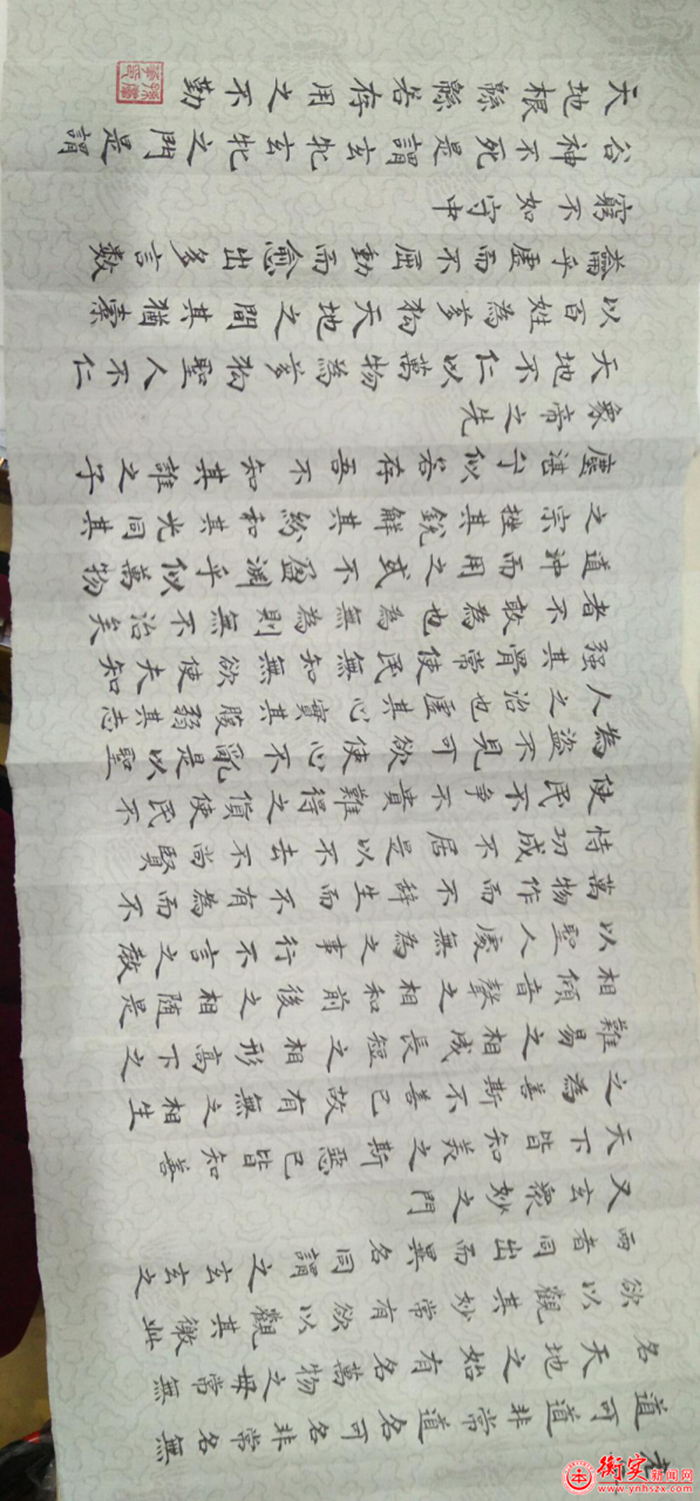 老
道可道非常道名可名非常名無
名天地之始有名萬物之母常無
欲以觀其妙常有欲以觀其徼此
兩者同出而異名同謂之玄玄之
又玄衆妙之門
天下皆知美之斯惡已皆知善
之為善斯不善已故有無之相生
難易之相成長短之相形高下之
相傾音聲之相和前後之相随是
以聖人處無為之事行不言之教
萬物作而不辞生而不有為而不
恃功成不居是以不去不尚賢
使民不爭不貴難得之貨使民不
為盜不見可欲使心不亂是以聖
人之治也虛其心實其腹弱其志
强其骨常使民無知無欲使夫知
者不敢為也為無為則無不治矣
道沖而用之或不盈渊乎似萬物
之宗挫其銳解其紛和其光同其
塵湛兮似若存吾不知其誰之子
象帝之先
天地不仁以萬物為芻狗聖人不仁
以百姓為芻狗天地之間其猶橐
籥乎虛而不屈動而愈出多言數
窮不如守中
谷神不死是謂玄牝玄牝之門是謂
天地根緜緜若存用之不勤
衡实新闻网
www.ynhszx.com